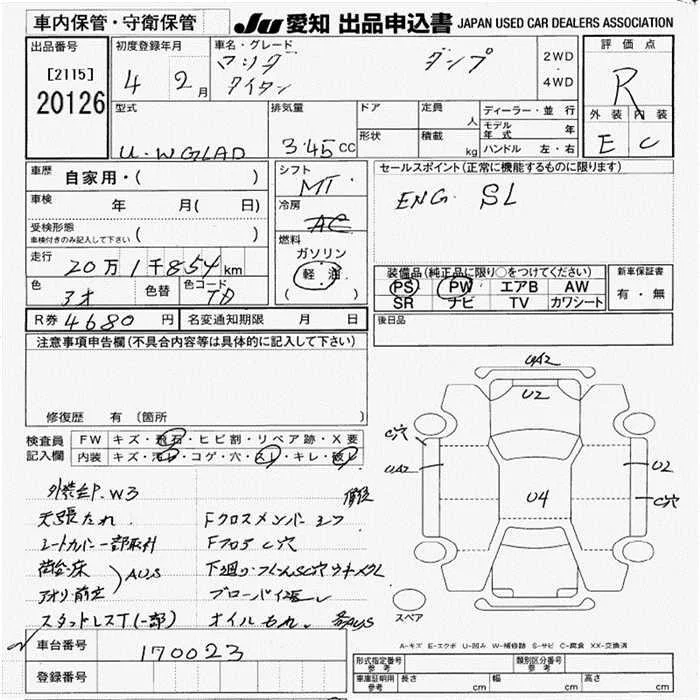 車内保管・守衛保管
JU 愛知 出品申込書 JAPAN USED CAR DEALERS ASSOCIATION
出品番号
[2115]
20126
初度登録年月
4 2月
車名・グレード
マツダ ダンプ
タイタン
2WD
4WD
評価点
R
外装 内装
E C
型式
U-WGLAD
排気量
3.45cc
ドア
形状
定員 人
積載 kg
ディーラー・並行
モデル年式 年
ハンドル 左・右
車歴 自家用・( )
車検 年 月( 日)
受検形態
車検付きのみ記入して下さい ( )
走行 20万1千854km
色 アオ 色替 色コード TA
シフト
MT
冷房
AC
燃料
ガソリン
軽油
( )
セールスポイント(正常に機能するものに限ります)
ENG. SL
装備品(純正品に限り○をつけてください)
PS PW エアB AW
SR ナビ TV カワシート
新車保証書
有・無
R券 4680円 名変通知期限 月 日
後日品
注意事項申告欄(不具合内容等は具体的に記入して下さい)
修復歴 有 〔箇所 〕
検査員
記入欄
FW キズ・飛石・ヒビ割・リペア跡・X要
内装 キズ・汚れ・コゲ・穴・スレ・キレ・破れ
外装全P.W3
天張たれ
シートカバー一部取付
荷台床
アオリ前立
AUS
スタッドレスT(一部)
Fクロスメンバー
Fフロア C穴
オイルもれ
UA2
U2
C穴
UA2
U4
U2
C穴
スペア
A-キズ E-エクボ U-凹み W-補修跡 S-サビ C-腐食 XX-交換済
車台番号 170023
登録番号
形式指定番号 参考
類別区分番号 参考
車庫証明用 参考
長さ cm 幅 cm 高さ cm